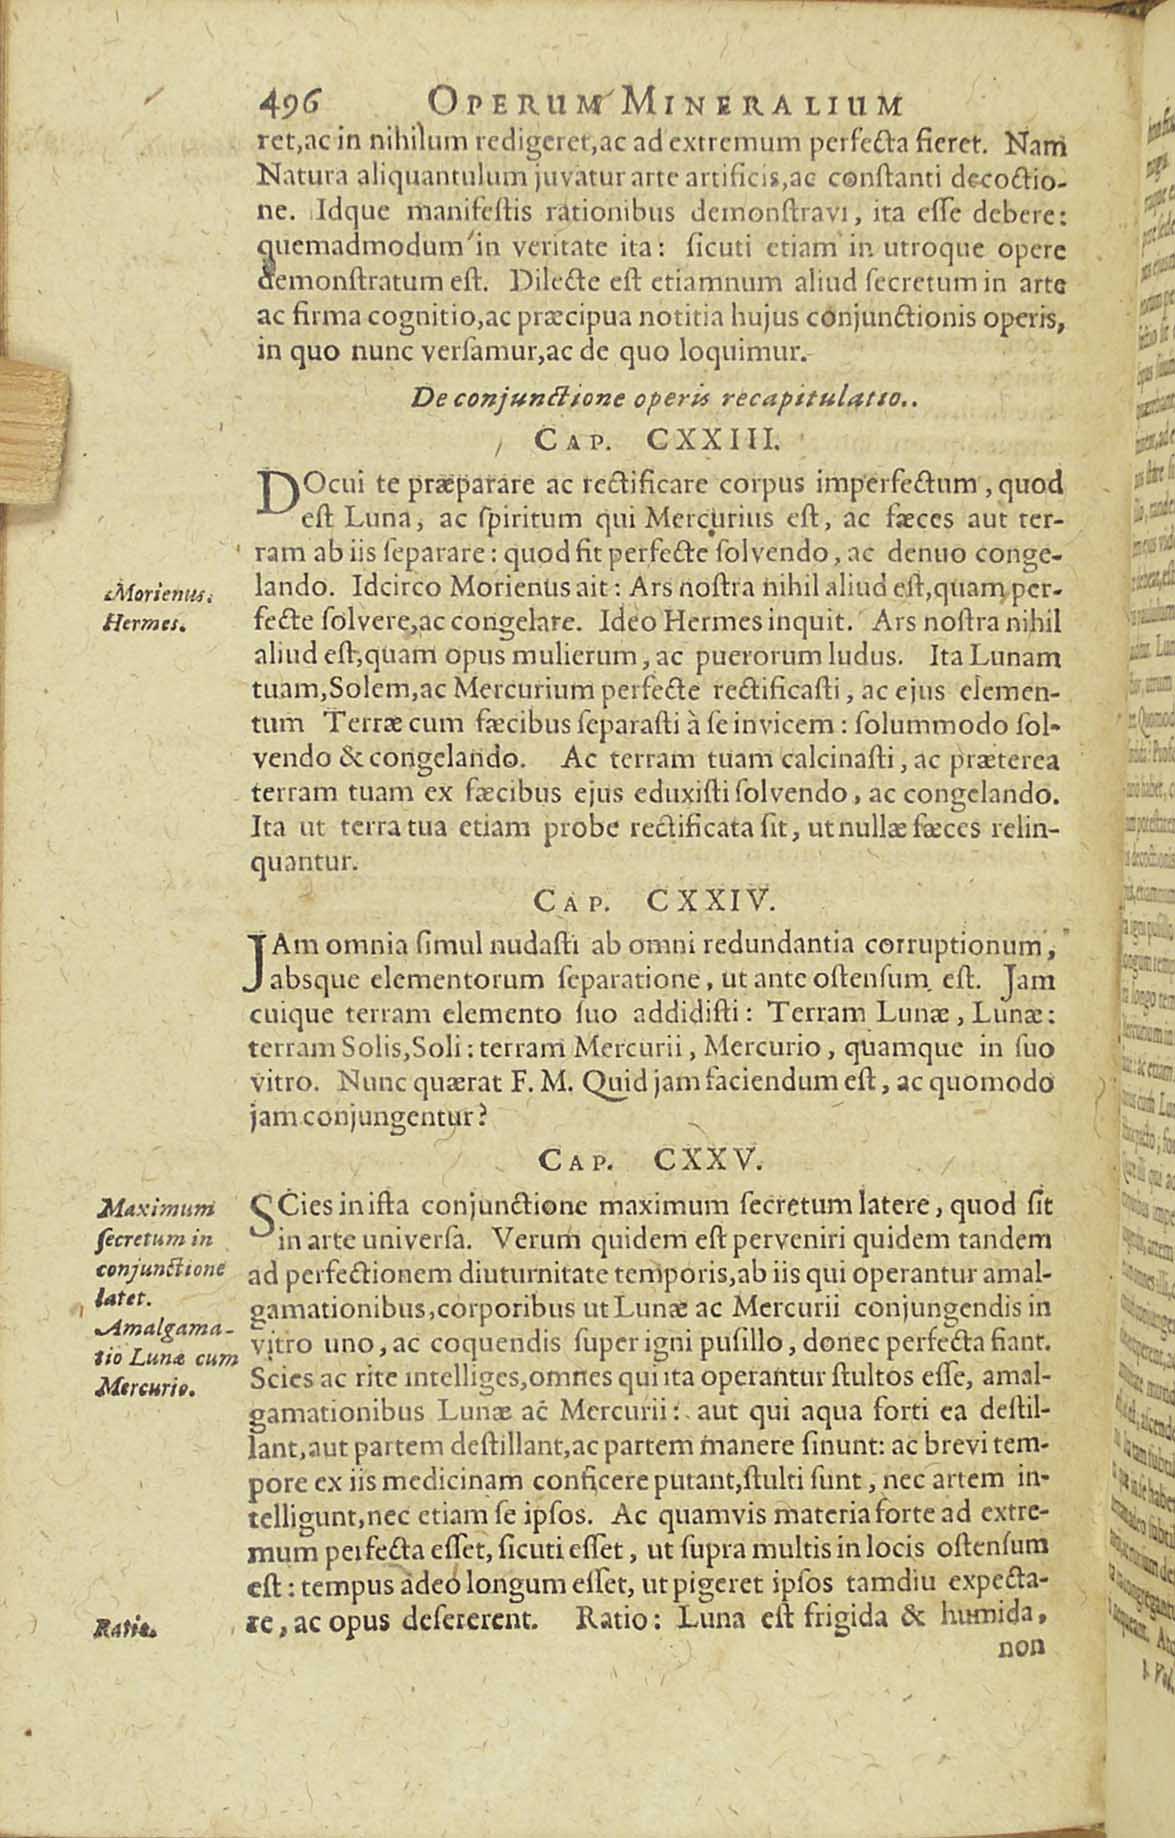 496 OPERUM MINERALIUM
ret,ac in nihilum redigeret,ac ad extremum perfecta fieret. Nam
Natura aliquantulum juvatur arte artificis,ac conſtanti decoctio-
ne. Idque manifeſtis rationibus demonſtravi, ita eſſe debere:
quemadmodum in veritate ita: ſicuti etiam in utroque opere
demonſtratum eſt. Dilecte eſt etiamnum aliud ſecretum in arte
ac firma cognitio,ac præcipua notitia hujus conjunctionis operis,
in quo nunc verſamur,ac de quo loquimur.
De conjunctione operis recapitulatio..
CAP. CXXIII.
DOcui te præparare ac rectificare corpus imperfectum, quod
eſt Luna, ac ſpiritum qui Mercurius eſt, ac fæces aut ter-
ram ab iis ſeparare: quod fit perfecte ſolvendo, ac denuo conge-
Morienus.
lando. Idcirco Morienus ait: Ars noſtra nihil aliud eſt,quam per-
Hermes.
fecte ſolvere,ac congelare. Ideo Hermes inquit. Ars noſtra nihil
aliud eſt,quam opus mulierum, ac puerorum ludus. Ita Lunam
tuam,Solem,ac Mercurium perfecte rectificaſti, ac ejus elemen-
tum Terræ cum fæcibus ſeparaſti à ſe invicem: ſolummodo ſol-
vendo & congelando. Ac terram tuam calcinaſti, ac præterea
terram tuam ex fæcibus ejus eduxiſti ſolvendo, ac congelando.
Ita ut terra tua etiam probe rectificata ſit, ut nullæ fæces relin-
quantur.
CAP. CXXIV.
JAm omnia ſimul nudaſti ab omni redundantia corruptionum,
absque elementorum ſeparatione, ut ante oſtenſum eſt. Jam
cuique terram elemento ſuo addidiſti: Terram Lunæ, Lunæ:
terram Solis,Soli: terram Mercurii, Mercurio, quamque in ſuo
vitro. Nunc quærat F. M. Quid jam faciendum eſt, ac quomodo
jam conjungentur?
CAP. CXXV.
Maximum
ſecretum in
conjunctione
latet.
Amalgama-
tio Lunæ cum
Mercurio.
SCies in iſta conjunctione maximum ſecretum latere, quod ſit
in arte univerſa. Verum quidem eſt perveniri quidem tandem
ad perfectionem diuturnitate temporis,ab iis qui operantur amal-
gamationibus,corporibus ut Lunæ ac Mercurii conjungendis in
vitro uno, ac coquendis ſuper igni puſillo, donec perfecta fiant.
Scies ac rite intelliges,omnes qui ita operantur ſtultos eſſe, amal-
gamationibus Lunæ ac Mercurii: aut qui aqua forti ea deſtil-
lant,aut partem deſtillant,ac partem manere ſinunt: ac brevi tem-
pore ex iis medicinam conficere putant,ſtulti ſunt, nec artem in-
telligunt,nec etiam ſe ipſos. Ac quamvis materia forte ad extre-
mum perfecta eſſet, ſicuti eſſet, ut ſupra multis in locis oſtenſum
eſt: tempus adeo longum eſſet, ut pigeret ipſos tamdiu expecta-
Ratio.
re, ac opus deſererent. Ratio: Luna eſt frigida & humida,
non